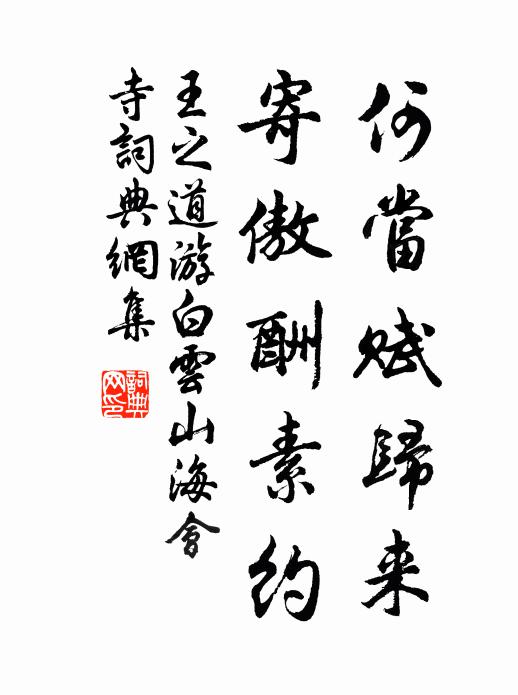 何當賦歸来
寄傲酬素約
王之道游白雲山海會
寺詞典網集
詞典网印